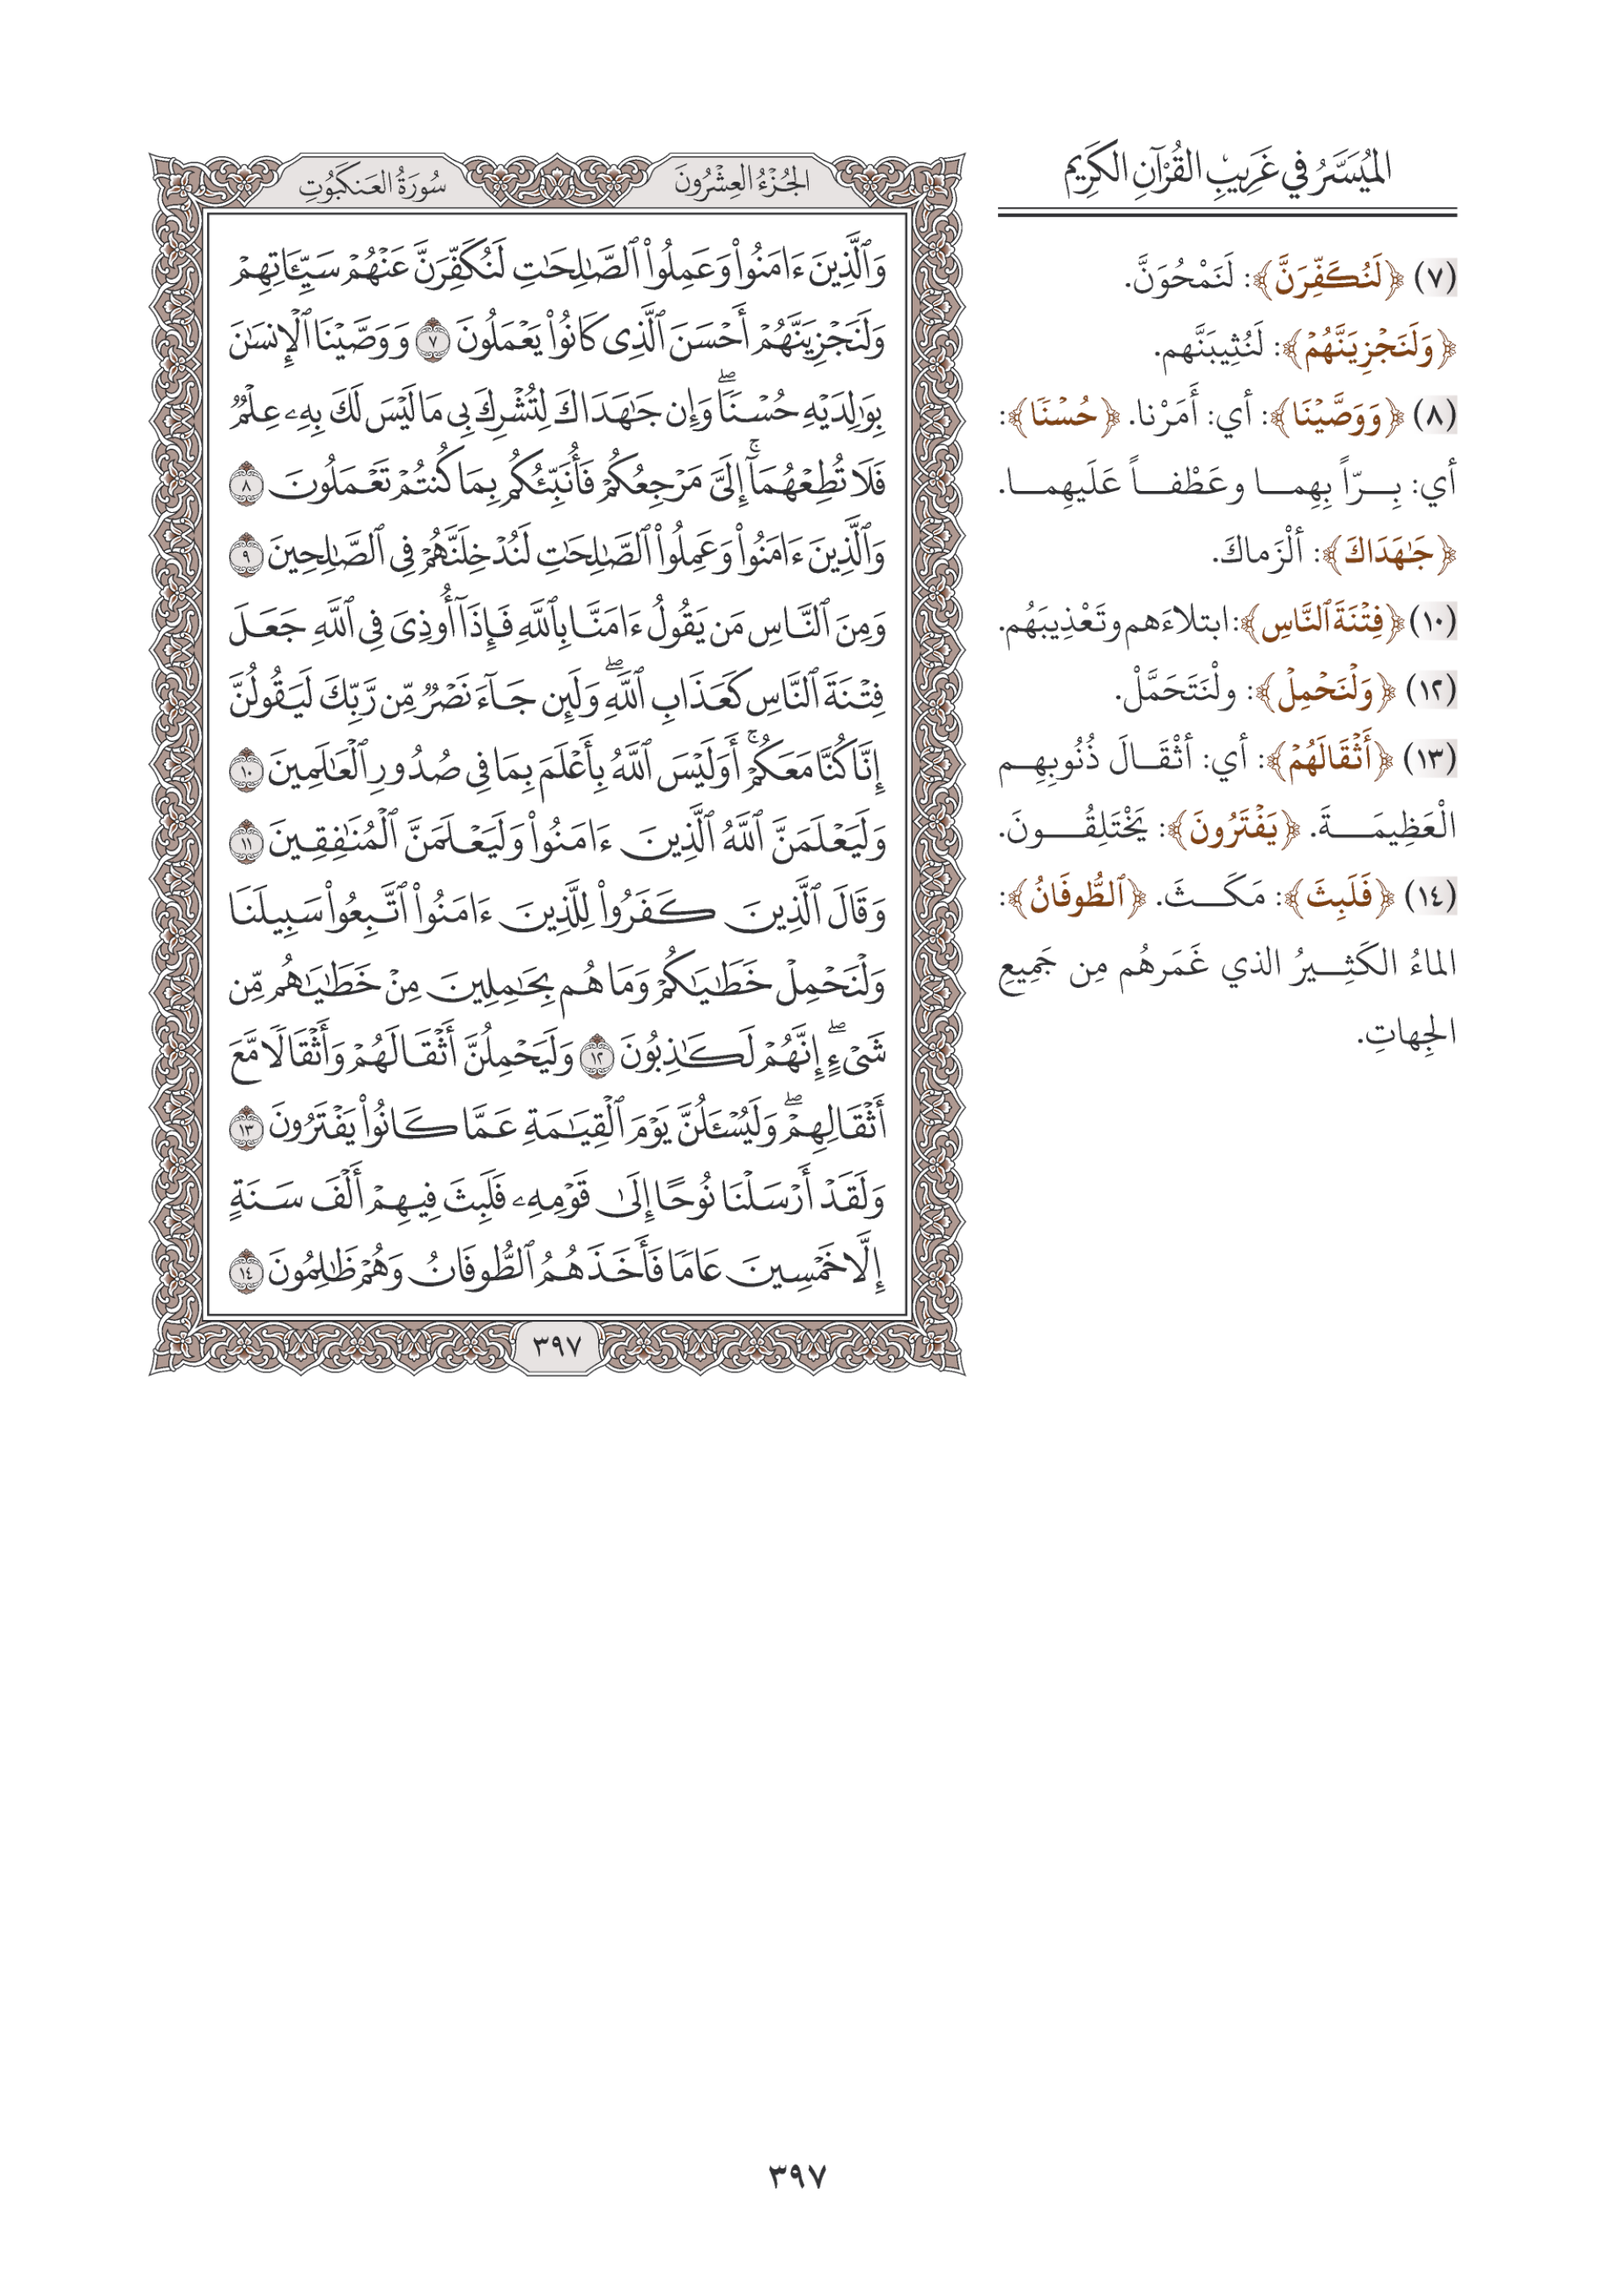 المُيَسَّرُ في غَرِيبِ القُرْآنِ الكَرِيم
(٧) ﴿لَنُكَفِّرَنَّ﴾: لَنَمْحُوَنَّ.
﴿وَلَنَجْزِيَنَّهُمْ﴾: لَنُثِيبَنَّهم.
(٨) ﴿وَوَصَّيْنَا﴾: أي: أَمَرْنا. ﴿حُسْنٗا﴾:
أي: بِرّاً بِهِما وعَطْفاً عَلَيهِما.
﴿جَٰهَدَاكَ﴾: ألْزَماكَ.
(١٠) ﴿فِتْنَةَ ٱلنَّاسِ﴾: ابتلاءَهم وتَعْذِيبَهُم.
(١٢) ﴿وَلْنَحْمِلْ﴾: ولْنَتَحَمَّلْ.
(١٣) ﴿أَثْقَالَهُمْ﴾: أي: أثْقَالَ ذُنُوبِهِم
الْعَظِيمَةَ. ﴿يَفْتَرُونَ﴾: يَخْتَلِقُونَ.
(١٤) ﴿فَلَبِثَ﴾: مَكَثَ. ﴿ٱلطُّوفَانُ﴾:
الماءُ الكَثِيرُ الذي غَمَرهُم مِن جَمِيعِ
الجِهاتِ.
الجُزْءُ العِشْرُونَ
سُورَةُ العَنكَبُوتِ
وَٱلَّذِينَ ءَامَنُواْ وَعَمِلُواْ ٱلصَّٰلِحَٰتِ لَنُكَفِّرَنَّ عَنْهُمْ سَيِّـَٔاتِهِمْ
وَلَنَجْزِيَنَّهُمْ أَحْسَنَ ٱلَّذِي كَانُواْ يَعْمَلُونَ ٧ وَوَصَّيْنَا ٱلْإِنسَٰنَ
بِوَٰلِدَيْهِ حُسْنٗاۖ وَإِن جَٰهَدَاكَ لِتُشْرِكَ بِي مَا لَيْسَ لَكَ بِهِۦ عِلْمٞ
فَلَا تُطِعْهُمَآۚ إِلَيَّ مَرْجِعُكُمْ فَأُنَبِّئُكُم بِمَا كُنتُمْ تَعْمَلُونَ ٨
وَٱلَّذِينَ ءَامَنُواْ وَعَمِلُواْ ٱلصَّٰلِحَٰتِ لَنُدْخِلَنَّهُمْ فِي ٱلصَّٰلِحِينَ ٩
وَمِنَ ٱلنَّاسِ مَن يَقُولُ ءَامَنَّا بِٱللَّهِ فَإِذَآ أُوذِيَ فِي ٱللَّهِ جَعَلَ
فِتْنَةَ ٱلنَّاسِ كَعَذَابِ ٱللَّهِۖ وَلَئِن جَآءَ نَصْرٞ مِّن رَّبِّكَ لَيَقُولُنَّ
إِنَّا كُنَّا مَعَكُمْۚ أَوَلَيْسَ ٱللَّهُ بِأَعْلَمَ بِمَا فِي صُدُورِ ٱلْعَٰلَمِينَ ١٠
وَلَيَعْلَمَنَّ ٱللَّهُ ٱلَّذِينَ ءَامَنُواْ وَلَيَعْلَمَنَّ ٱلْمُنَٰفِقِينَ ١١
وَقَالَ ٱلَّذِينَ كَفَرُواْ لِلَّذِينَ ءَامَنُواْ ٱتَّبِعُواْ سَبِيلَنَا
وَلْنَحْمِلْ خَطَٰيَٰكُمْ وَمَا هُم بِحَٰمِلِينَ مِنْ خَطَٰيَٰهُم مِّن
شَيْءٍۖ إِنَّهُمْ لَكَٰذِبُونَ ١٢ وَلَيَحْمِلُنَّ أَثْقَالَهُمْ وَأَثْقَالٗا مَّعَ
أَثْقَالِهِمْۖ وَلَيُسْـَٔلُنَّ يَوْمَ ٱلْقِيَٰمَةِ عَمَّا كَانُواْ يَفْتَرُونَ ١٣
وَلَقَدْ أَرْسَلْنَا نُوحًا إِلَىٰ قَوْمِهِۦ فَلَبِثَ فِيهِمْ أَلْفَ سَنَةٍ
إِلَّا خَمْسِينَ عَامٗا فَأَخَذَهُمُ ٱلطُّوفَانُ وَهُمْ ظَٰلِمُونَ ١٤
٣٩٧
٣٩٧